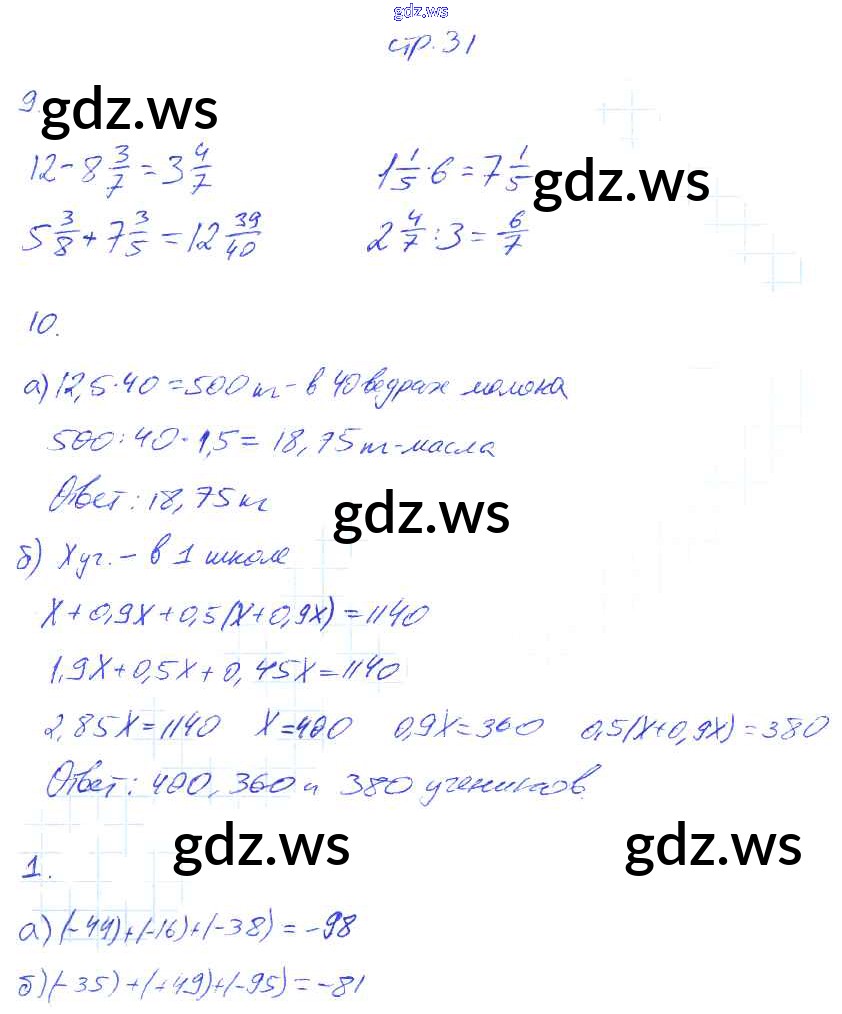 gdz.ws
стр. 31
9. gdz.ws
12 - 8 3/7 = 3 4/7    1 1/5 · 6 = 7 1/5 gdz.ws
5 3/8 + 7 3/5 = 12 39/40    2 4/7 : 3 = 6/7
10.
а) 12,5 · 40 = 500 кг - в 40 ведрах молока
500 : 40 · 1,5 = 18,75 кг - масла
Ответ: 18,75 кг
gdz.ws
б) X уч. - в 1 школе
X + 0,9X + 0,5(X + 0,9X) = 1140
1,9X + 0,5X + 0,45X = 1140
2,85X = 1140    X = 400    0,9X = 360    0,5(X + 0,9X) = 380
Ответ: 400, 360 и 380 учеников.
gdz.ws gdz.ws
1.
а) (-44) + (-16) + (-38) = -98
б) (-35) + (+49) + (-95) = -81